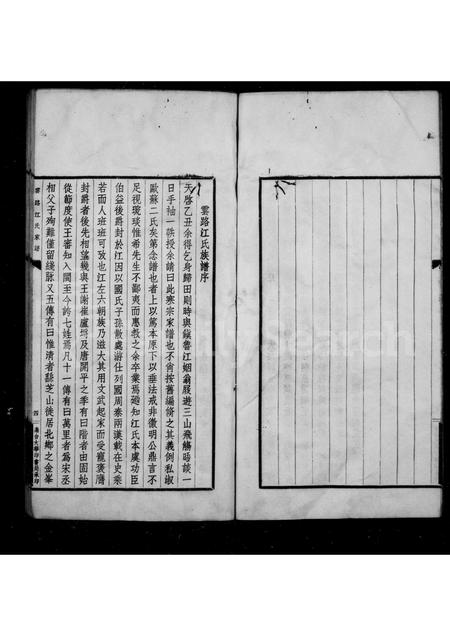 雲路江氏族譜序
天啓乙丑余得乞身歸田則時與鎮魯江姻翁屐遊三山飛觴晤談一
日手袖一帙授余請曰此寒宗家譜也不肖按舊編脩之其義倒私淑
歐蘇二氏矣第念譜也者上以篤本原下以垂法戒非徵明公鼎言不
足視琬琰惟希先生不鄙夷而惠教之余卒業焉廼知江氏本虞功臣
伯益後爵封於江因以國氏子孫散處游仕列國周秦兩漢載在史乘
若而人班班可攷也江左六朝族乃滋大其用文武起家而受寵褒膺
封爵者後先相望幾與王謝崔盧埒及唐開平之季有曰階者由固始
從節度使王審知入閩至今詩七姓焉凡十一傳有曰萬里者為宋丞
相父子殉難僅留綫脉又五傳有曰惟清者繇芝山徙居北鄉之金峯
雲路江氏家譜
四